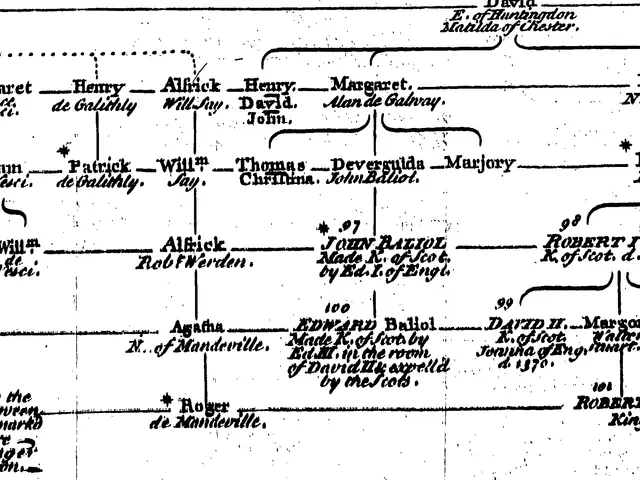 David
E. of Huntingdon
Matilda of Chester.
Henry
de Galithly
Alfrick
Will. Say.
Henry.
David.
John.
Margaret.
Alan de Galway.
Patrick
de Galithly.
Willm
Say.
Thomas
Christina.
Devergulda
John Baliol.
Marjory
Willm
de
Alfrick
Robt Werden.
97
JOHN BALIOL
Made K. of Scot.
by Ed. I. of Engl.
98
ROBERT I
K. of Scot. d.
Agatha
N... of Mandeville.
100
EDWARD Baliol
Made K. of Scot. by
Ed. III. in the room
of David II & expell'd
by the Scots.
99
DAVID II.
K. of Scot.
Joanna of Eng.
d. 1370.
the
Roger
de Mandeville.
101
ROBERT
King